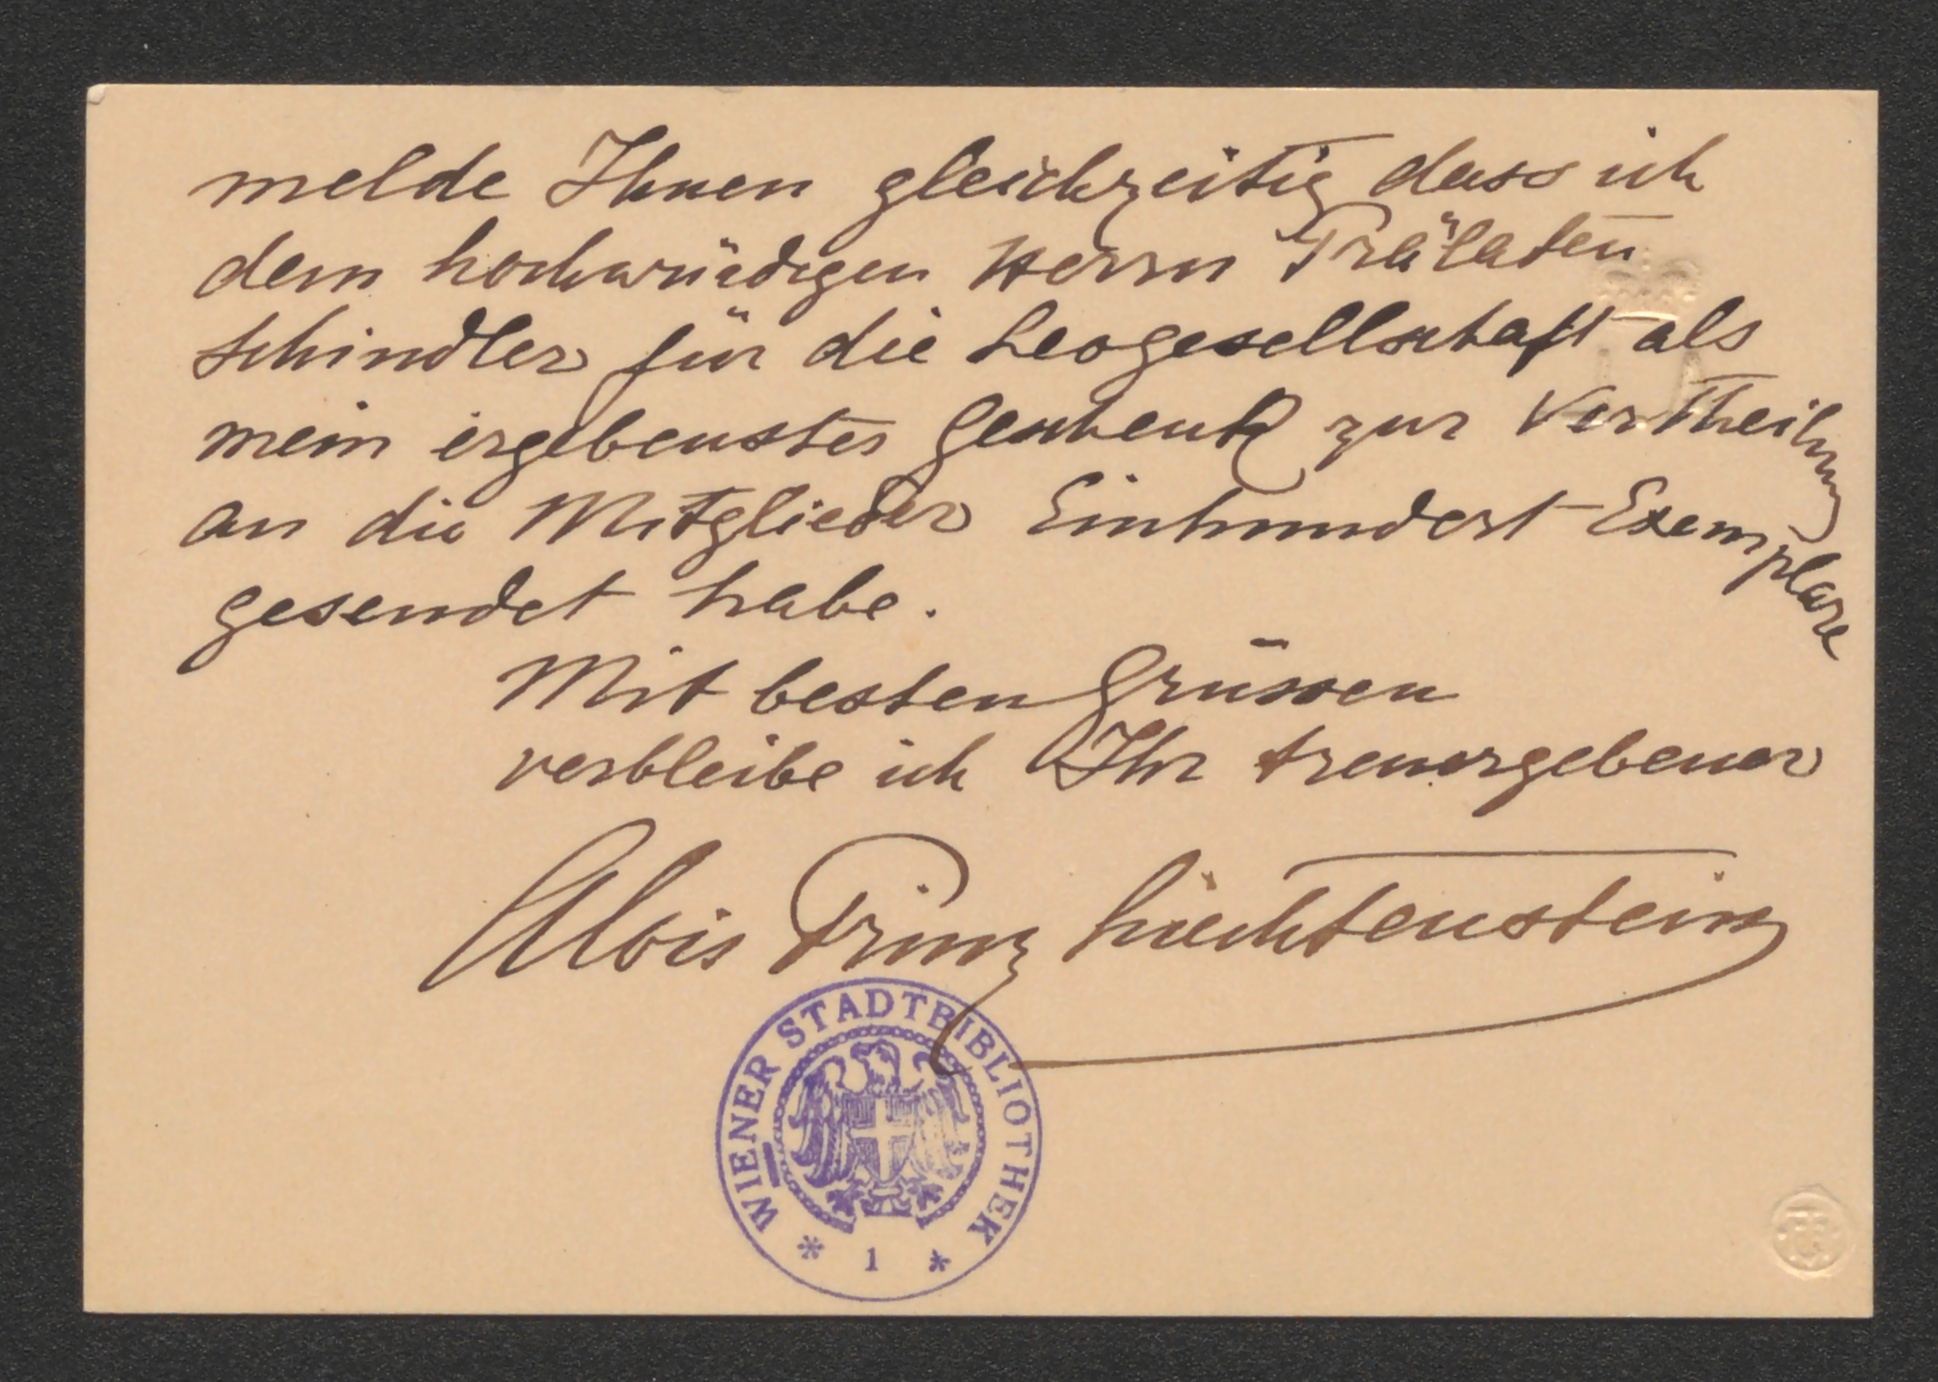 melde Ihnen gleichzeitig dass ich
dem hochwürdigen Herrn Prälaten
Schindler für die Leogesellschaft als
mein ergebenstes Geschenk zur Vertheilung
an die Mitglieder Einhundert Exemplare
gesendet habe.
Mit besten Grüssen
verbleibe ich Ihr treuergebener
Alois Prinz Liechtenstein
WIENER STADTBIBLIOTHEK
* 1 *